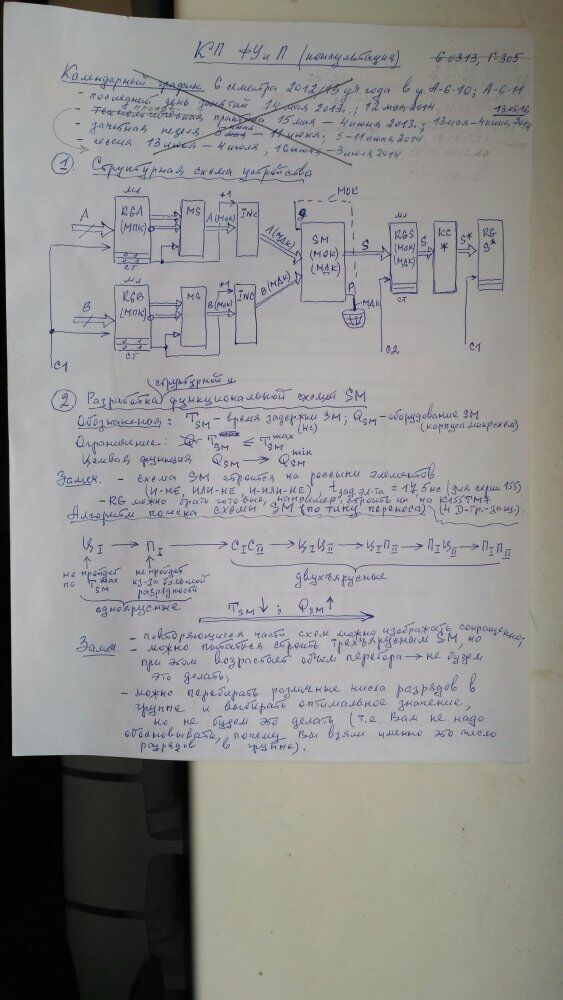 КП ФУиП (консультация) 60313, Г-305
Календарный график 6 семестра 2012/13 уч года в гр. А-6-10; А-6-11
- последний день занятий 14 мая 2013.; 12 мая 2014 13.05.16
- Технологическая практика 15 мая – 4 июня 2013.; 13 мая – 4 июня 2014
- зачетная неделя 5 июня – 11 июня; 5-11 июня 2014
- сессия 13 июня – 4 июля, 16 июня – 3 июля 2014
① Структурная схема устройства
А мл RGA (МПК) СТ MS А(МОК) +1 INC А(МДК)
МОК SM (МОК) (МДК) P МДК S
мл RGS (МОК) (МДК) СТ S КС * S* RG S*
В мл RGB (МПК) СТ MS В(МОК) +1 INC В(МДК)
C1 C2 C1
структурной и
② Разработка функциональной схемы SM
Обозначения: TSM – время задержки SM; QSM – оборудование SM
(нс) (корпуса микросхем)
Ограничение: TSM ≤ TSM max
Целевая функция QSM → QSM min
Замеч. - схема SM строится на россыпи элементов
(И-НЕ, ИЛИ-НЕ, И-ИЛИ-НЕ) tзад.эл-та = 17,5 нс (для серии 155)
- RG можно брать готовые, например, строить их на К155ТМ7
(4 D-тр.-защ.)
Алгоритм поиска схемы SM (по типу переноса)
ЦI → ПI → CICII → ЦIЦII → ЦIПII → ПIЦII → ПIПII
не пройдет по TSM max
не пройдет из-за большой разрядности
одноярусные
двухъярусные
TSM ↓ ; QSM ↑
Замеч - повторяющиеся части схем можно изображать сокращенно;
- можно пытаться строить трехъярусным SM, но
при этом возрастает объем перебора → не будем
это делать;
- можно перебирать различные числа разрядов в
группе и выбирать оптимальное значение,
но не будем это делать (т.е. Вам не надо
обосновывать, почему Вы взяли именно это число
разрядов в группе).